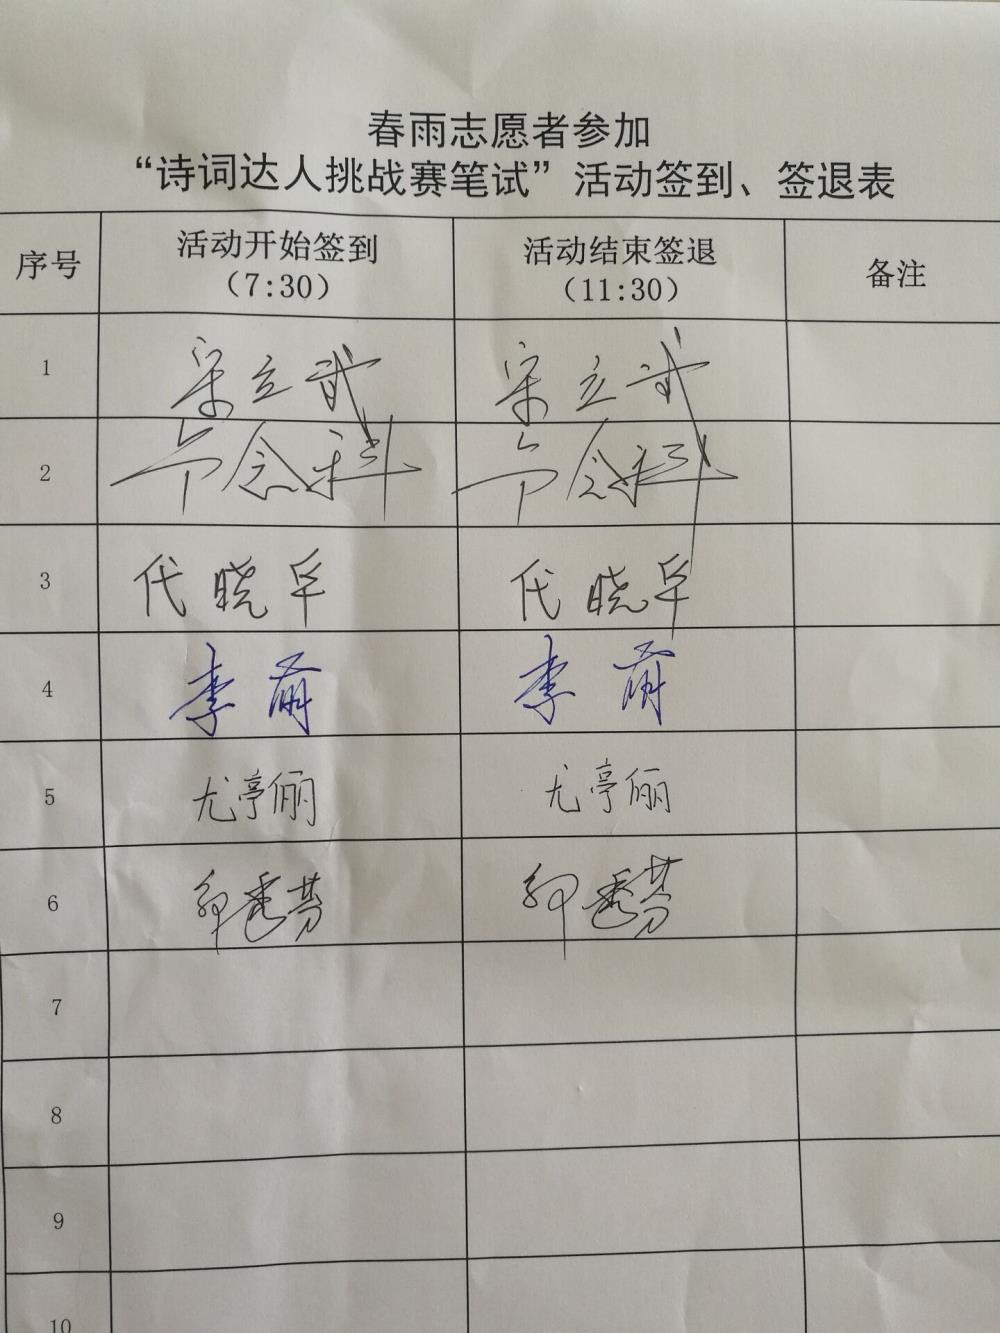 春雨志愿者参加
“诗词达人挑战赛笔试”活动签到、签退表
序号 活动开始签到 (7:30) 活动结束签退 (11:30) 备注
1 宋立武 宋立武
2 念科 念科
3 代晓军 代晓军
4 李萌 李萌
5 尤亭俪 尤亭俪
6 秀芬 秀芬
7
8
9
10